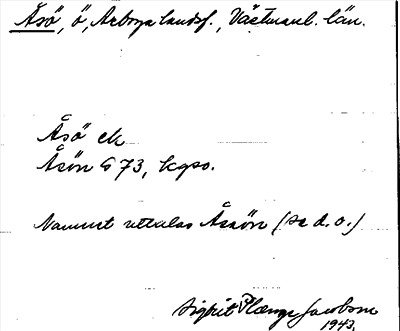 Åsö, ö, Arboga landsf., Västmanl. län.
Åsö ek
Åsön G 73, kgso.
Namnet uttalas Åsön (se d.o.)
Sigrit Plænge Jacobson
1943.